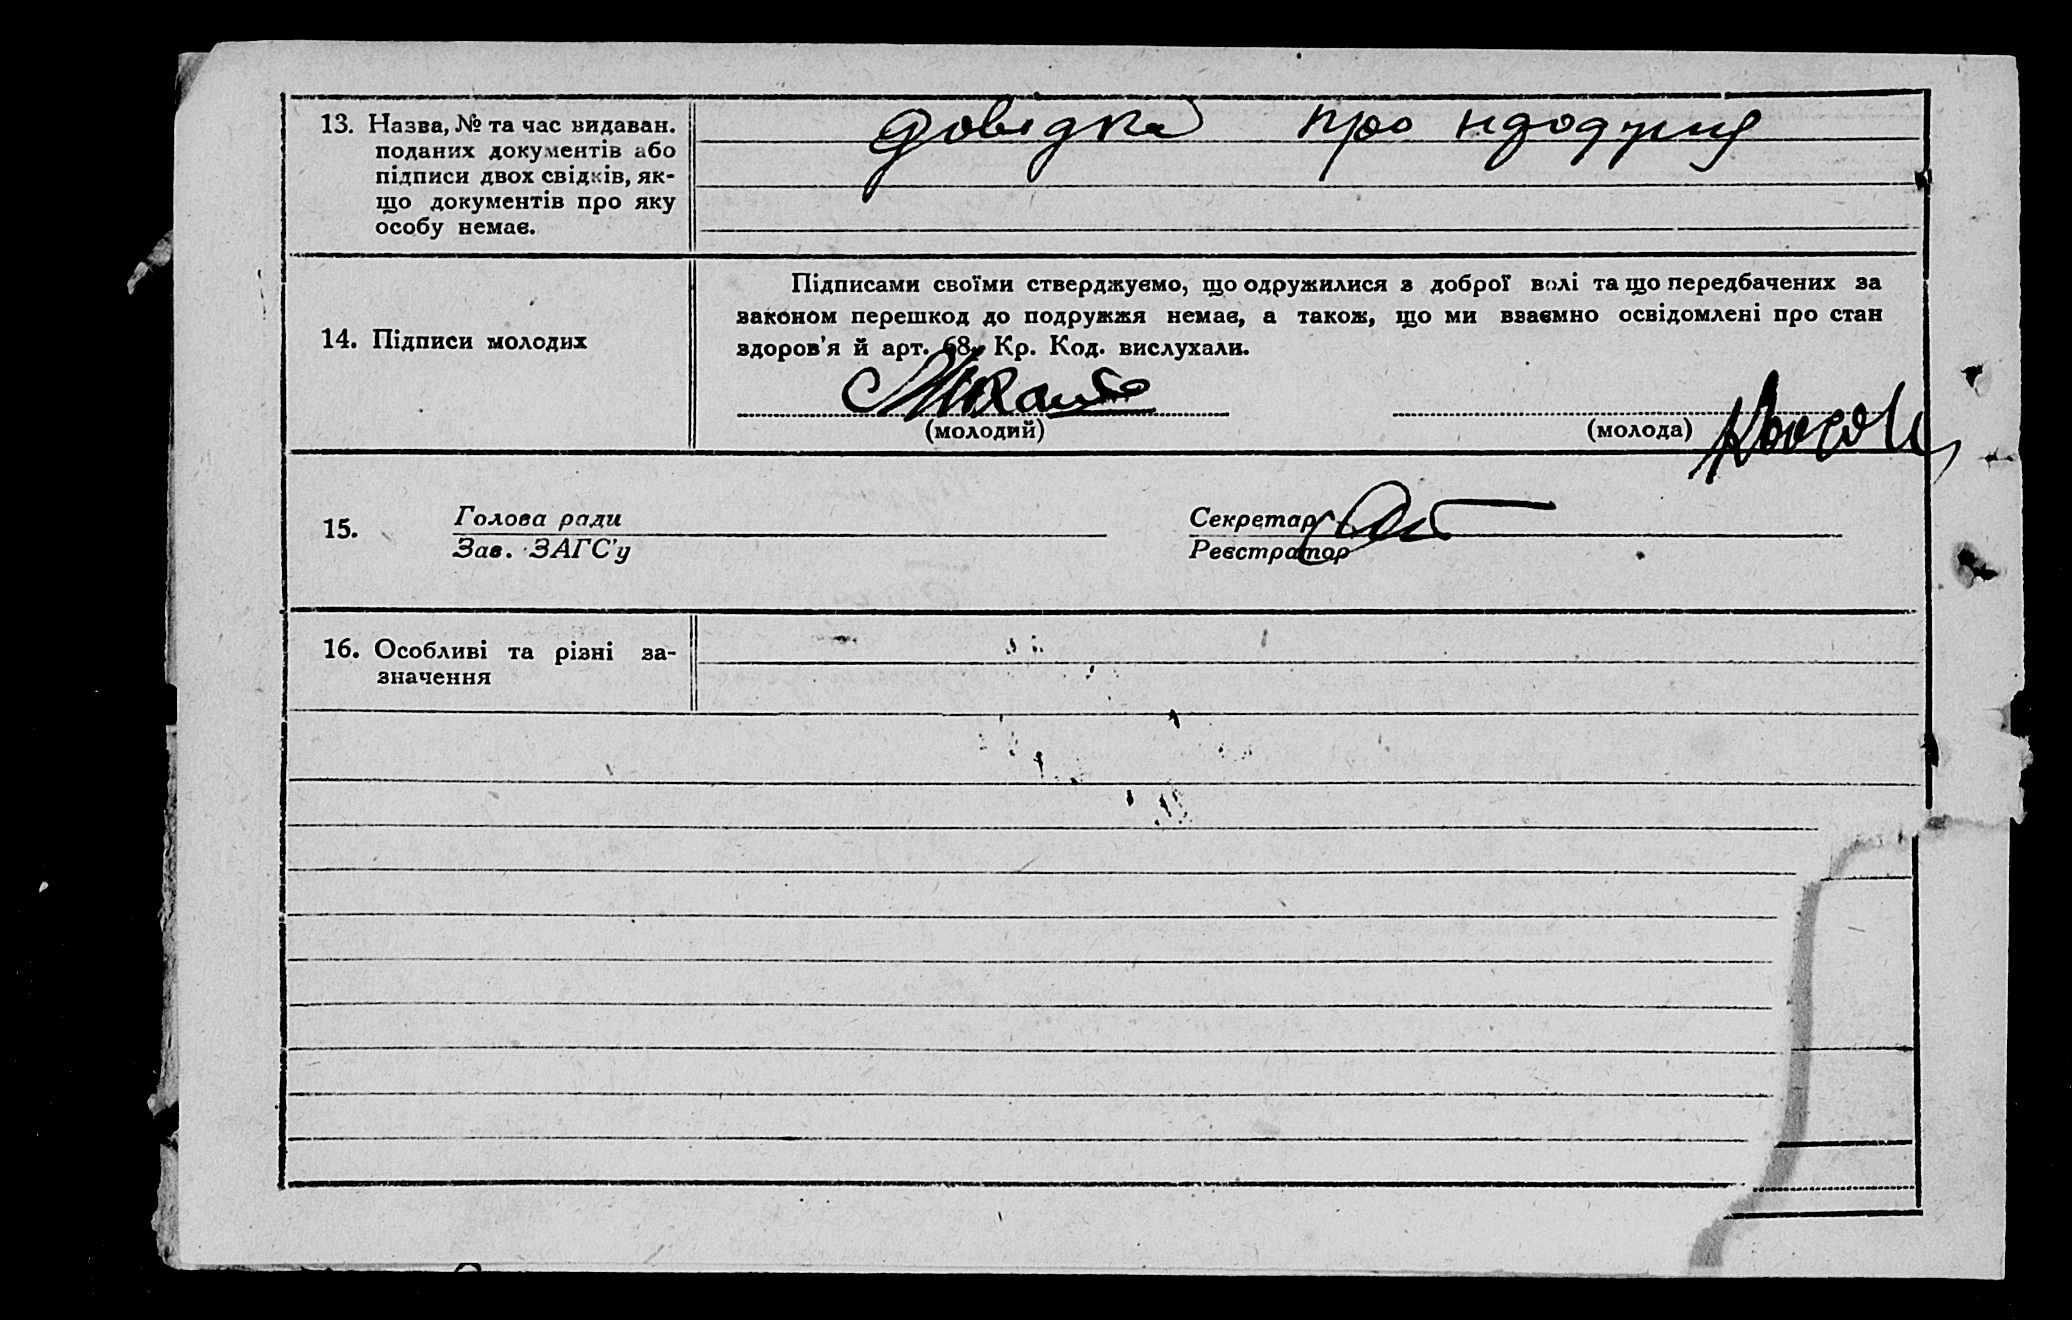 13. Назва, № та час видаван.
поданих документів або
підписи двох свідків, як-
що документів про яку
особу немає.
довідка про
14. Підписи молодих
Підписами своїми стверджуємо, що одружилися з доброї волі та що передбачених за
законом перешкод до подружжя немає, а також, що ми взаємно освідомлені про стан
здоров'я й арт. 68 Кр. Код. вислухали.
(молодий) (молода)
15. Голова ради Секретар
Зав. ЗАГС'у Реєстратор
16. Особливі та різні за-
значення